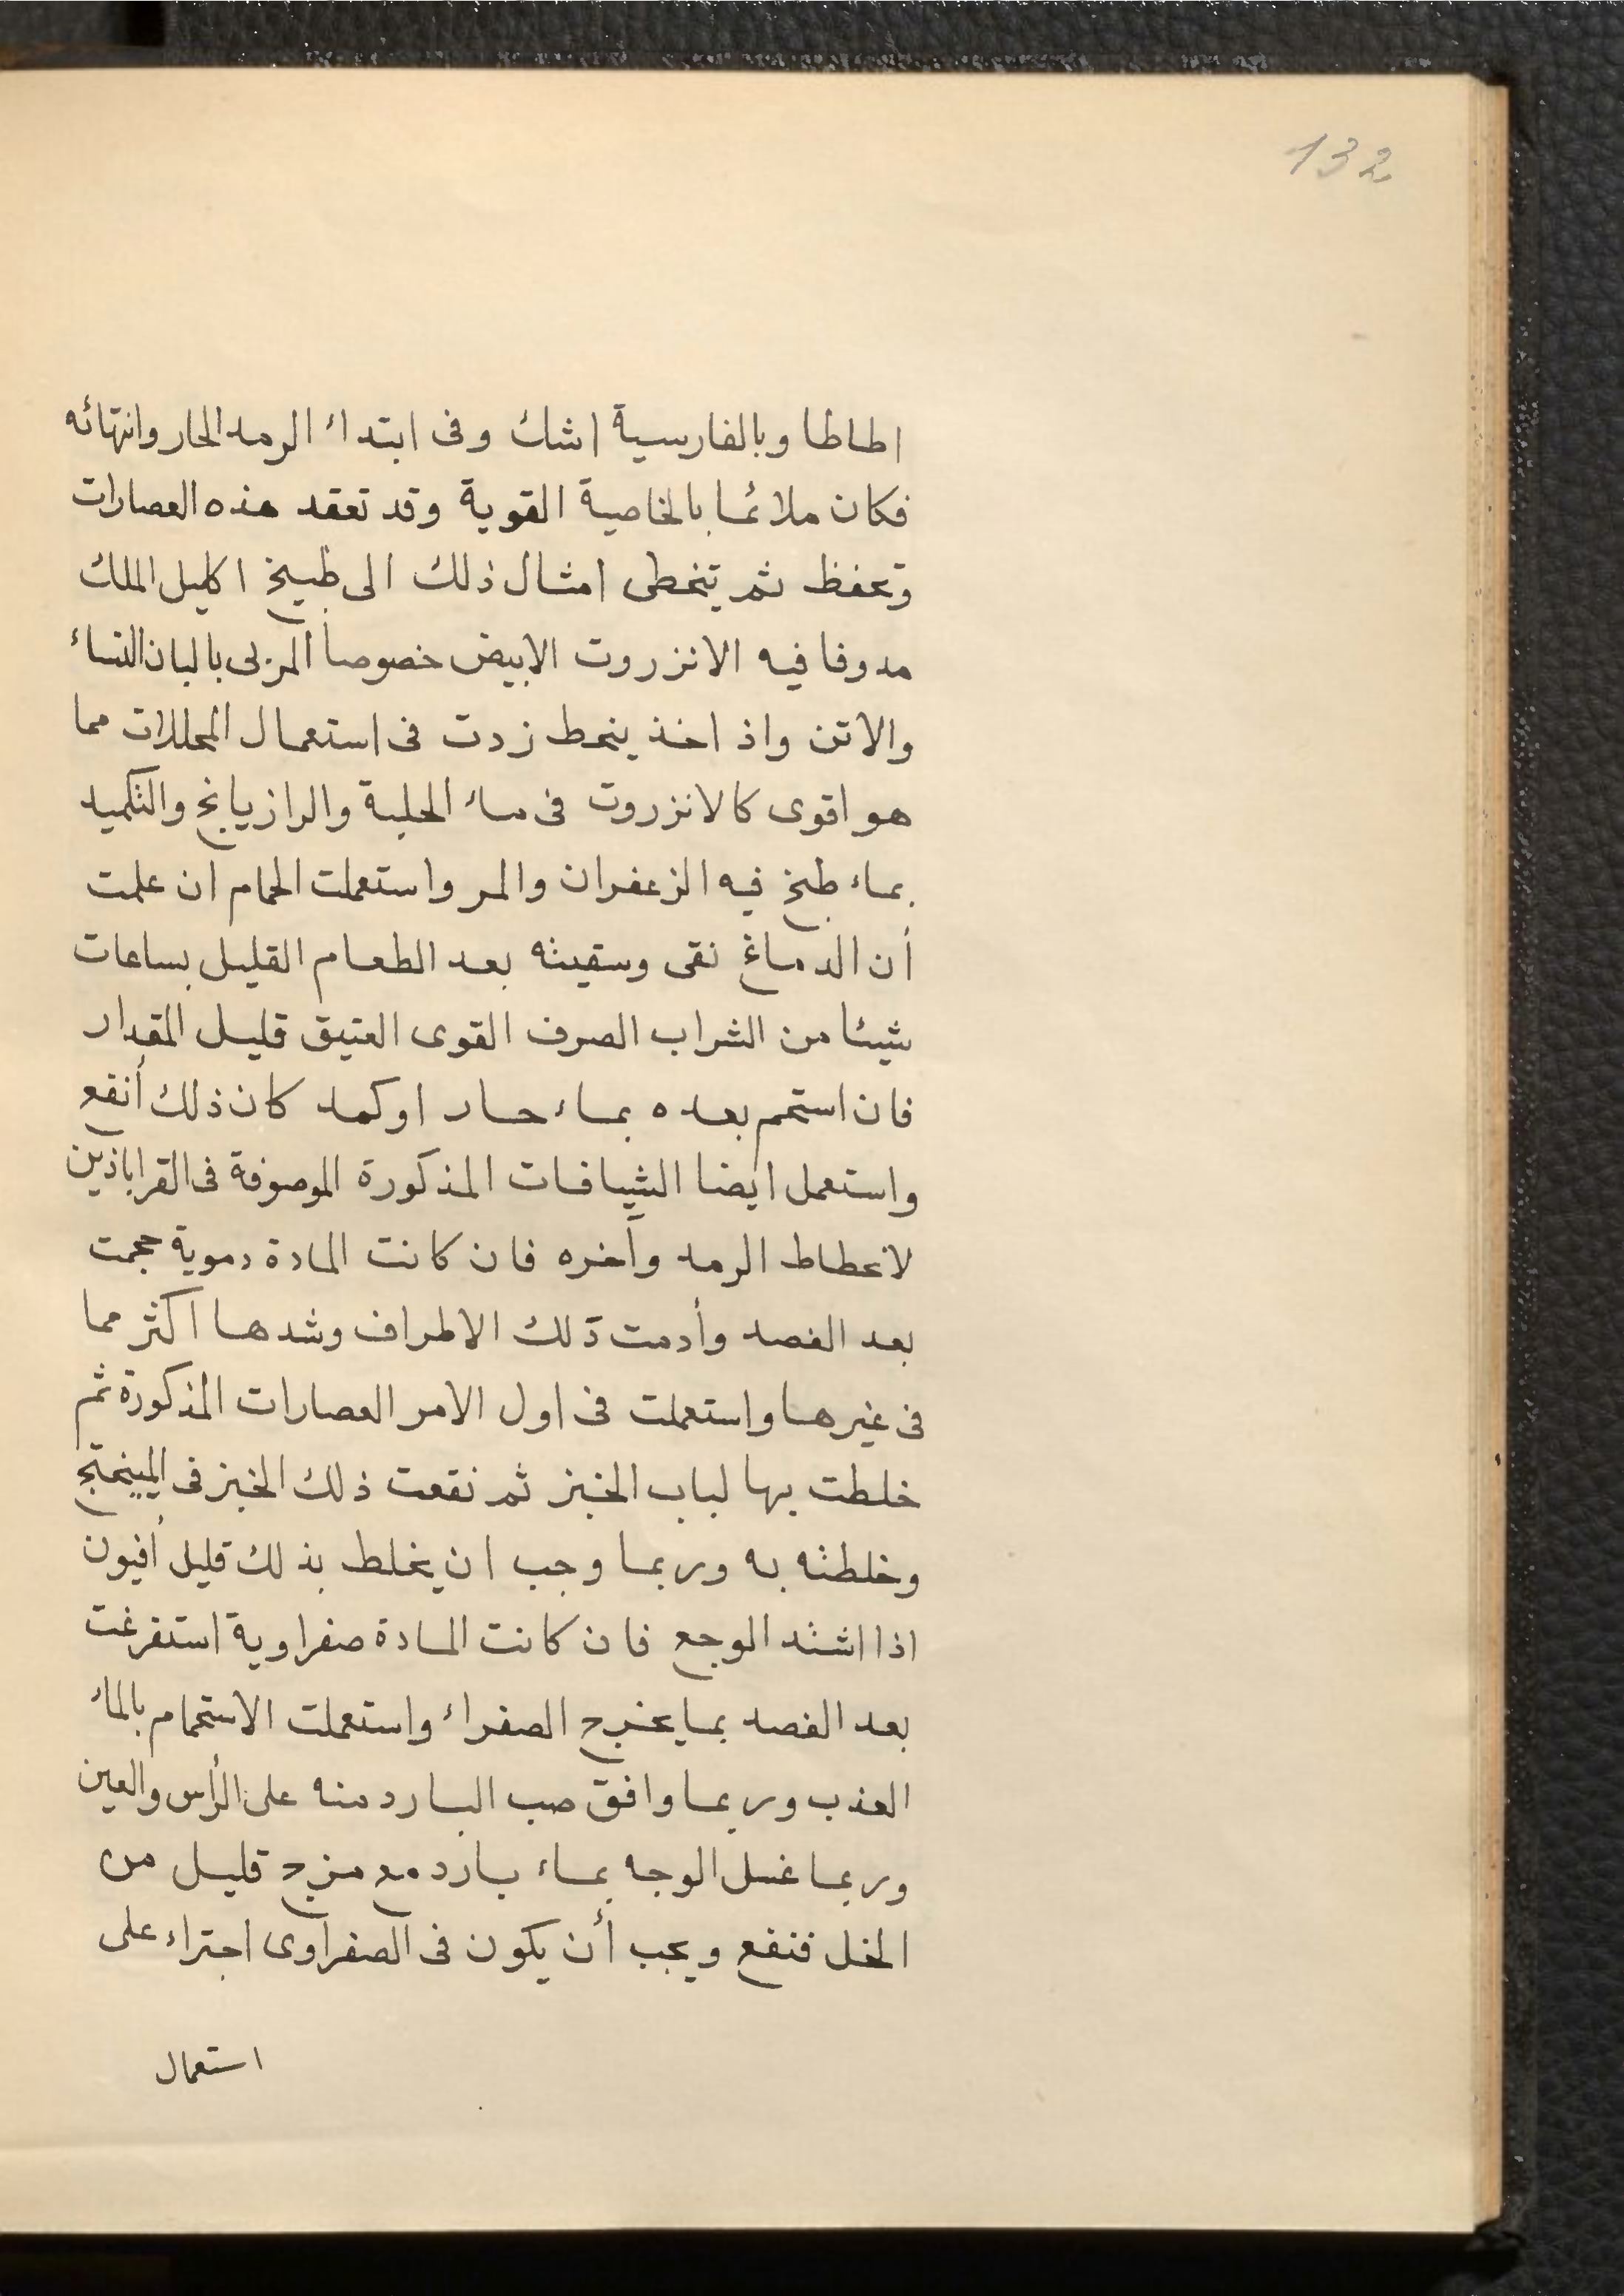 132
اطاطا وبالفارسية اشك وفى ابتداء الرمد الحار وانتهائه
فكان ملائما بالخاصية القوية وقد تعقد هذه العصارات
وتحفظ ثم يتخطى امثال ذلك الى طبيخ اكليل الملك
مدوفا فيه الانزروت الابيض خصوصا المربى بالبان النساء
والاتن واذ اخذ ينحط زدت فى استعمال المحللات مما
هو اقوى كالانزروت فى ماء الحلبة والرازيانج والتكميد
بماء طبخ فيه الزعفران والمر واستعملت الحمام ان علمت
أن الدماغ نقى وسقيته بعد الطعام القليل بساعات
شيئا من الشراب الصرف القوى العتيق قليل المقدار
فان استحم بعده بماء حار اوكمد كان ذلك أنقع
واستعمل ايضا الشيافات المذكورة الموصوفة فى القراباذين
لانحطاط الرمد وآخره فان كانت المادة دموية حجمت
بعد الفصد وأدمت دلك الاطراف وشدها اكثر مما
فى غيرها واستعملت فى اول الامر العصارات المذكورة ثم
خلطت بها لباب الخبز ثم نقعت ذلك الخبز فى الميبختج
وخلطته به وربما وجب ان يخلط بذلك قليل أفيون
اذا اشتد الوجع فان كانت المادة صفراوية استفرغت
بعد الفصد بما يخرج الصفراء واستعملت الاستحمام بالماء
العذب وربما وافق صب البارد منه على الرأس والعين
وربما غسل الوجه بماء بارد مع مزج قليل من
الخل فنفع ويجب أن يكون فى الصفراوى اجتراء على
استعمال